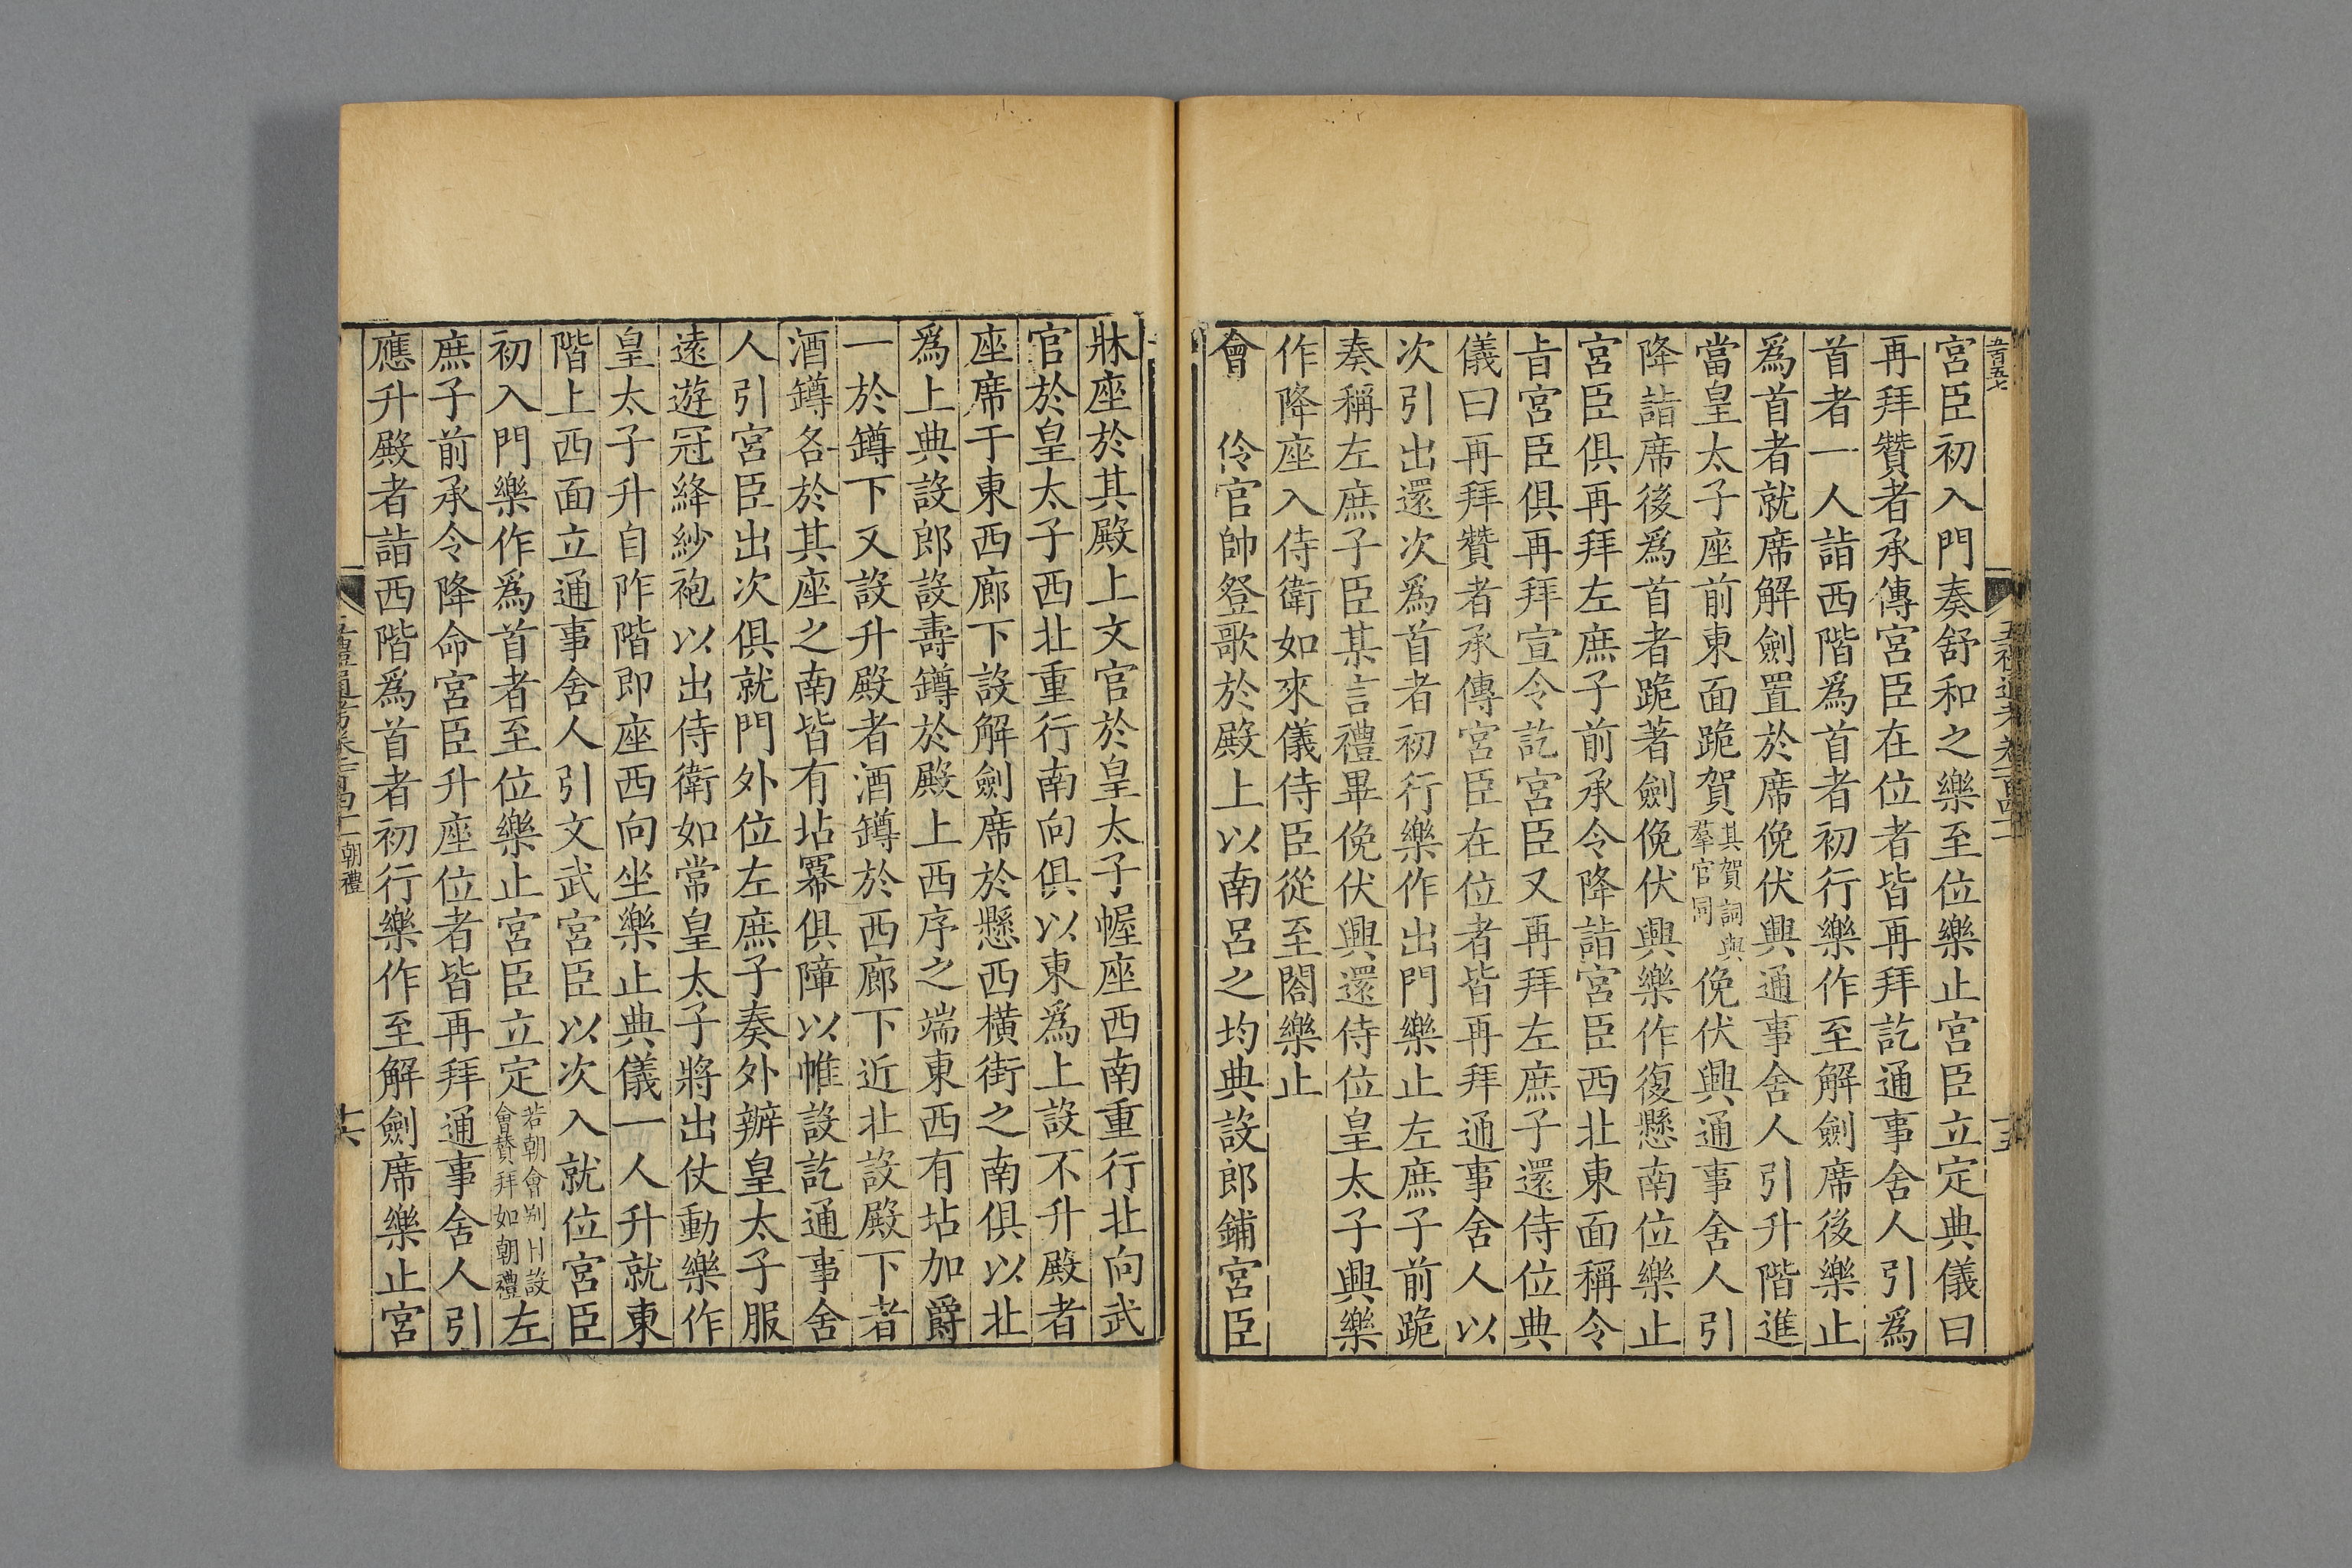 五百五七
宮臣初入門奏舒和之樂至位樂止宮臣立定典儀曰
再拜贊者承傳宮臣在位者皆再拜訖通事舍人引爲
首者一人詣西階爲首者初行樂作至解劍席後樂止
爲首者就席解劍置於席俛伏興通事舍人引升階進
當皇太子座前東面跪賀其賀詞與羣官同俛伏興通事舍人引
降詣席後爲首者跪著劍俛伏興樂作復懸南位樂止
宮臣俱再拜左庶子前承令降詣宮臣西北東面稱令
㫖宮臣俱再拜宣令訖宮臣又再拜左庶子還侍位典
儀曰再拜贊者承傳宮臣在位者皆再拜通事舍人以
次引出還次爲首者初行樂作出門樂止左庶子前跪
奏稱左庶子臣某言禮畢俛伏興還侍位皇太子興樂
作降座入侍衛如來儀侍臣從至閤樂止
會　伶官帥登歌於殿上以南呂之均典設郎鋪宮臣
牀座於其殿上文官於皇太子幄座西南重行北向武
官於皇太子西北重行南向俱以東爲上設不升殿者
座席于東西廊下設解劍席於懸西橫街之南俱以北
爲上典設郎設壽罇於殿上西序之端東西有坫加爵
一於罇下又設升殿者酒罇於西廊下近北設殿下者
酒罇各於其座之南皆有坫羃俱障以帷設訖通事舍
人引宮臣出次俱就門外位左庶子奏外辦皇太子服
遠遊冠絳紗袍以出侍衛如常皇太子將出仗動樂作
皇太子升自阼階即座西向坐樂止典儀一人升就東
階上西面立通事舍人引文武宮臣以次入就位宮臣
初入門樂作爲首者至位樂止宮臣立定若朝會別日設會贊拜如朝禮左
庶子前承令降命宮臣升座位者皆再拜通事舍人引
應升殿者詣西階爲首者初行樂作至解劍席樂止宮
朝禮